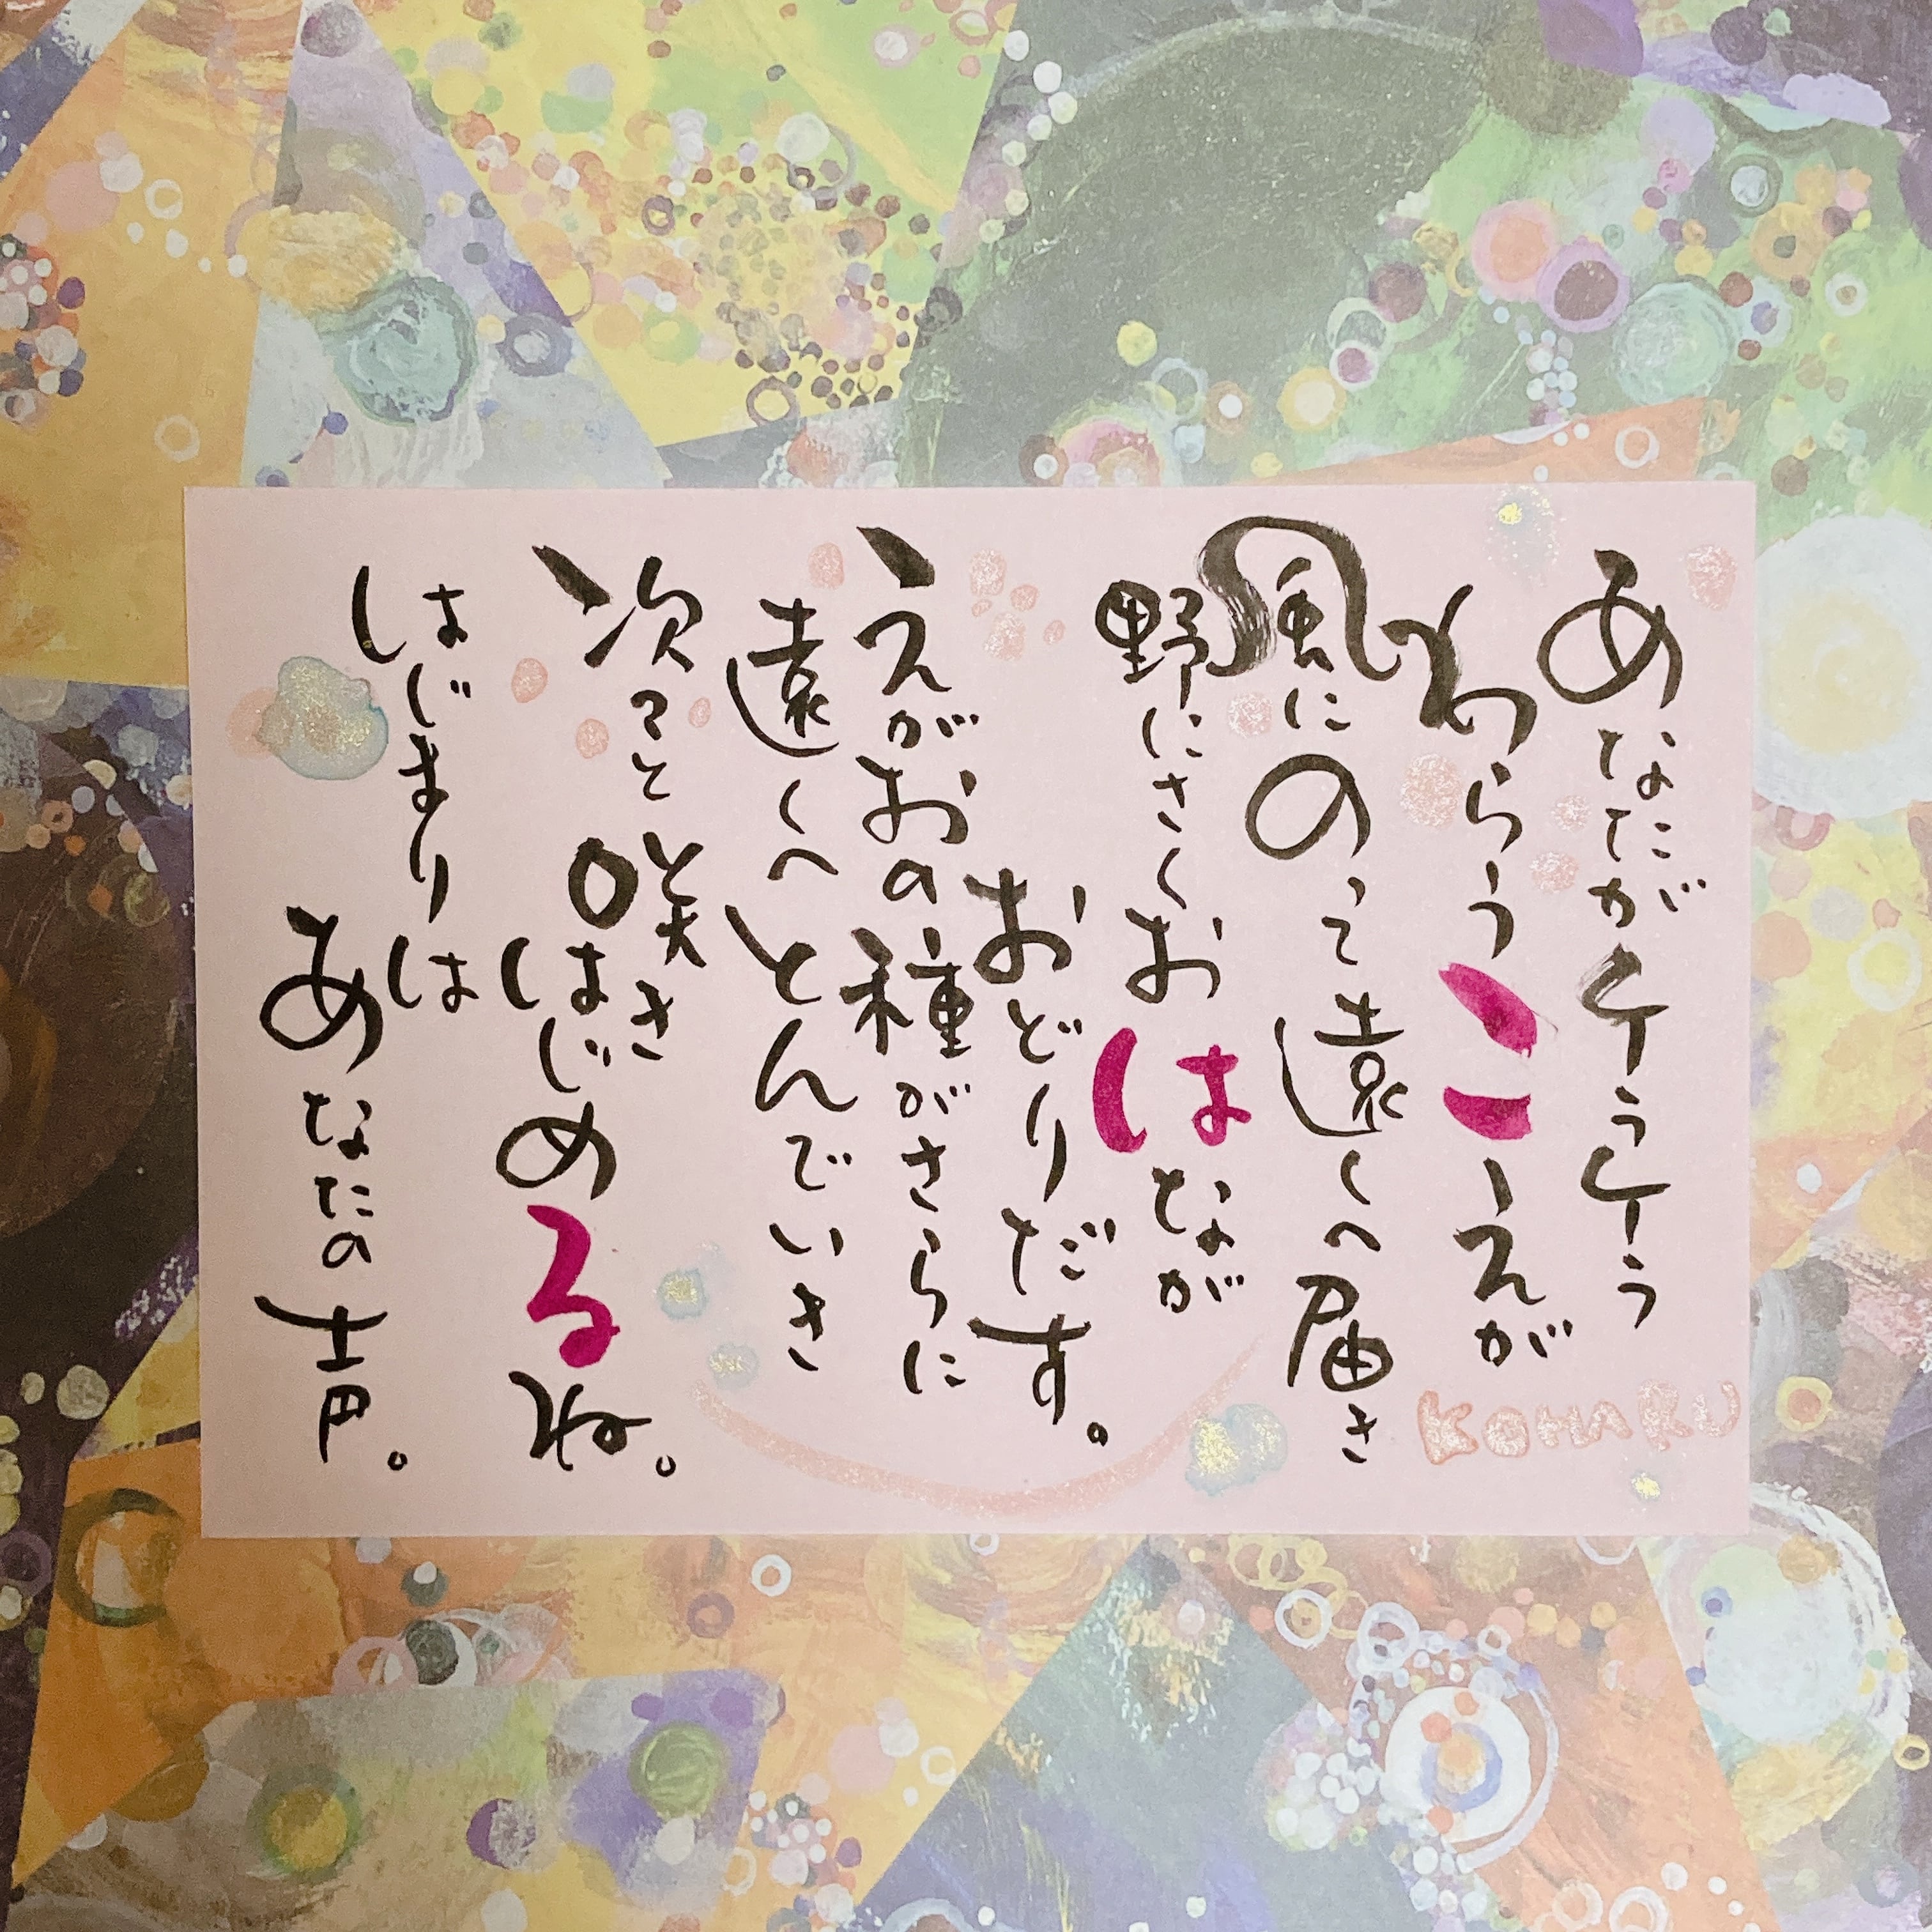 あなたがケラケラ
わらうこえが
風にのって遠くへ届き
野にさくおはなが
おどりだす。
えがおの種がさらに
遠くへとんでいき
次々と咲き
はじめるね。
はじまりは
あなたの声。
KOHARU